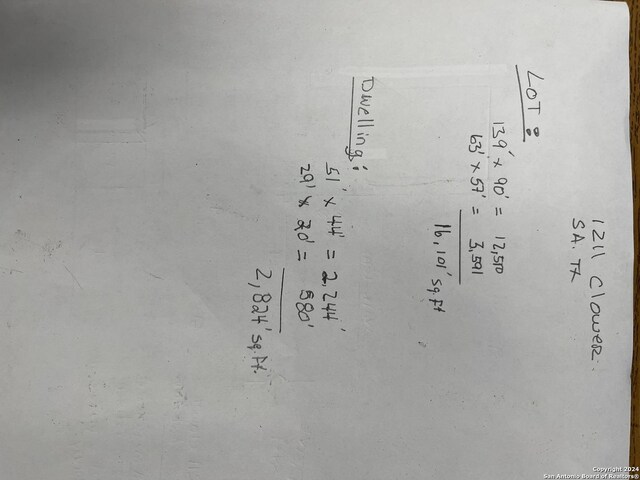 1211 Clower.
SA. TX
LOT:
139' x 90' = 12,510
63' x 57' = 3,591
16,101' sq.ft
Dwelling:
51' x 44' = 2,244'
29' x 20' = 580'
2,824' sq.ft.
Copyright 2024
San Antonio Board of Realtors®